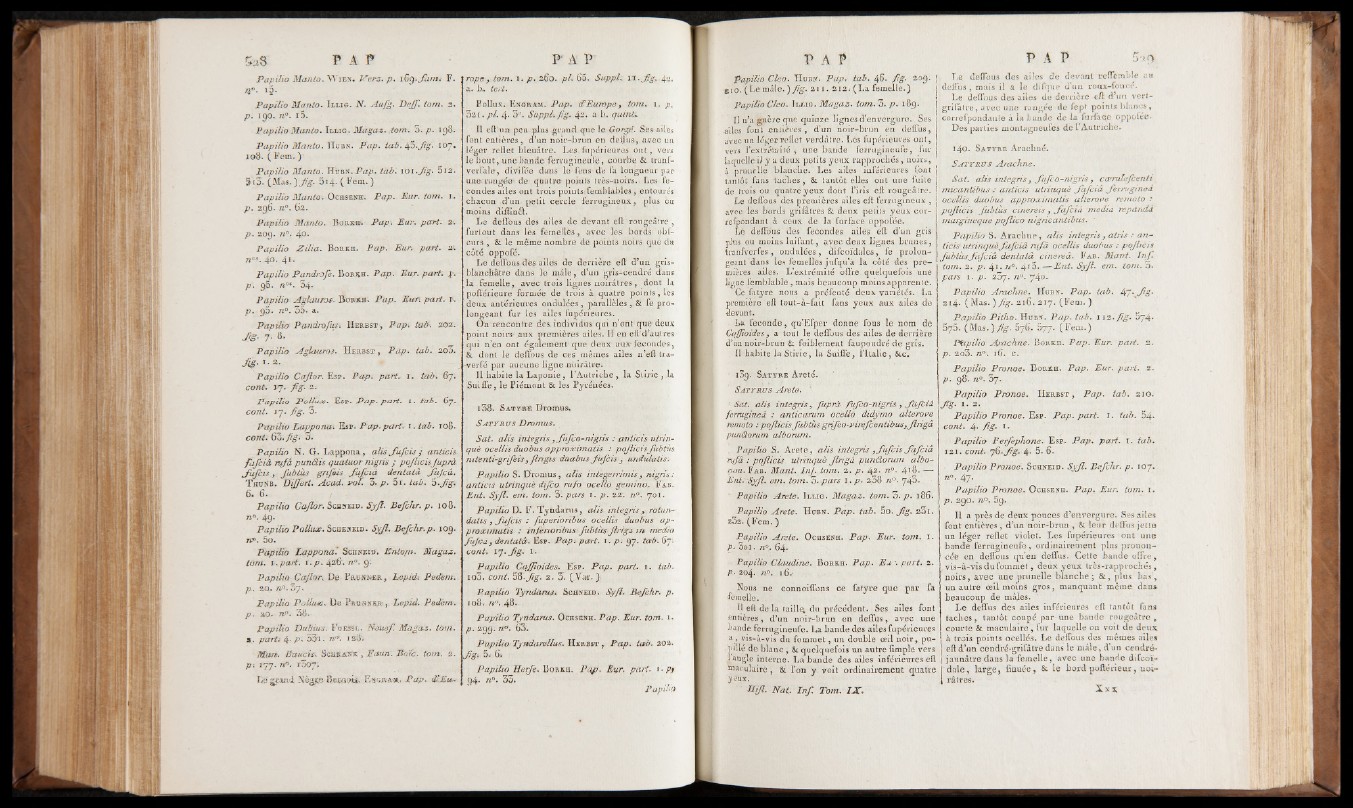 528 PAP PAP
Papilio Manto. WIEN. Verz. p. 169. fam. F.
nº. 12.
Papilio Manto. ILLIG. N. Ausg. Deff. tom. 2.
p. 190. nº. 15.
Papilio Manto. ILLIG. Magaz. tom. 3. p. 198.
Papilio Manto. HUBN. Pap. tab. 43. fig. 107.
108. ( Fem. )
Papilio Manto. HUBN. Pap. tab. 101. fig. 512.
513. (Mas.) fig. 514. (Fem.)
Papilio Manto. OCHSENH. Pap. Eur. tom. 1.
p. 296. nº. 62.
Papilio Manto. BORKH. Pap. Eur. part. 2.
p. 209. nº. 40.
Papilio Zilia. BORKH. Pap. Eur. part. 2.
nos. 40. 41.
Papilio Pandrofe. BORKH. Pap. Eur. part. 1.
p. 95. nos. 34.
Papilio Aglauros. BORKH. Pap. Eur. part. 1.
p. 95. nº. 35. a.
Papilio Pandrofus. HERBST, Pap. tab. 202.
fig. 7. 8.
Papilio Aglauros. HERBST, Pap. tab. 203.
fig. 1. 2.
Papilio Caftor. ESP. Pap. part. 1. tab. 67.
cont. 17. fig. 2.
Papilio Pollux. ESP. Pap. part. 1. tab. 67.
cont. 17. fig. 3.
Papilio Lappona. ESP. Pap. part. 1. tab. 108.
cont. 63. fig. 3.
Papilio N. G. Lappona, alis fufcis ; anticis
fafciâ rufâ punctis quatuor nigris ; pofticis fuprà
fufcis, fubtùs grifeis fafciâ dentatâ fufcâ.
THUNB. Differt. Acad. vol. 3. p. 51. tab. 5. fig.
6. 6.
Papilio Caftor. SCHNEID. Syft. Befchr. p. 108.
nº. 49.
Papilio Pollux. SCHNEID. Syft. Befchr. p. 109.
nº. 50.
Papilio Lappona. SCHNEID. Entom. Magaz.
tom. 1. part. 1. p. 426. nº. 9.
Papilio Caftor. DE PRUNNER, Lepid. Pedem.
p. 20. nº. 37.
Papilio Pollux. DE PRUNNER, Lepid. Pedem.
p. 20. nº. 38.
Papilio Dubius. FUESSL. Nouf. Magaz. tom.
2. part. 4. p. 331. nº. 128.
Mus. Baucis. SCHRANK, Faun. Boic. tom. 2.
p. 177. nº. 1307.
Le grand Nègre Bernois. ENGRAM. Pap. d'Eu-
rope, tom. 1. p. 260. pl. 65. Suppl. 11. fig. 42.
a. b. tert.
Pollux. ENGRAM. Pap. d'Europe, tom. 1. p.
321. pl. 4. 3º. Suppl. fig. 42. a. b. quint.
Il eft un peu plus grand que le Gorgé. Ses ailes
font entières, d'un noir-brun en deffus, avec un
léger reflet bleuâtre. Les fupérieures ont, vers
le bout, une bande ferrugineufe, courbe & tranf-
verfale, divifée dans le fens de fa longueur par
une rangée de quatre points très-noirs. Les fe-
condes ailes ont trois points femblables, entourés
chacun d'un petit cercle ferrugineux, plus ou
moins diftinct.
Le deffous des ailes de devant eft rougeâtre,
furtout dans les femelles, avec les bords obf-
curs, & le même nombre de points noirs que du
côté oppofé.
Le deffous des ailes de derrière eft d'un gris-
blanchâtre dans le mâle, d'un gris-cendré dans
la femelle, avec trois lignes noirâtres, dont la
poftérieure formée de trois à quatre points, les
deux antérieures ondulées, parallèles, & fe pro-
longeant fur les ailes fupérieures.
On rencontre des individus qui n'ont que deux
points noirs aux premières ailes. Il en eft d'autres
qui n'en ont également que deux aux fecondes,
& dont le deffous de ces mêmes ailes n'eft tra-
verfé par aucune ligne noirâtre.
Il habite la Laponie, l'Autriche, la Stirie, la
Suiffe, le Piémont & les Pyrénées.
138. SATYRE Dromus.
SATYRUS Dromus.
Sat. alis integris, fufco-nigris : anticis utrin-
què ocellis duobus approximatis : pofticis fubtùs
nitenti-grifeis, ftrigis duabus fufcis, undulatis.
Papilio S. Dromus, alis integerrimis, nigris :
anticis utrinquè difco rufo ocello gemino. FAB.
Ent. Syft. em. tom. 3. pars 1. p. 22. nº. 701.
Papilio D. F. Tyndarus, alis integris, rotun-
datis, fufcis : fuperioribus ocellis duobus ap-
proximatis : inferioribus fubtùs ftrigâ in medio
fufcâ, dentatâ. ESP. Pap. part. 1. p. 97. tab. 67.
cont. 17. fig. 1.
Papilio Caffioides. ESP. Pap. part. 1. tab.
103. cont. 58. fig. 2. 3. (Var.)
Papilio Tyndarus. SCHNEID. Syft. Befchr. p.
108. nº. 48.
Papilio Tyndarus. OCHSENH. Pap. Eur. tom. 1.
p. 299. nº. 63.
Papilio Tyndarellus. HERBST, Pap. tab. 202.
fig. 5. 6.
Papilio Herfe. BORKH. Pap. Eur. part. 1. p.
94. nº. 33.
Papilio
PAP PAP 529
Papilio Cleo. HUBN. Pap. tab. 46. fig. 209.
210. (Le mâle.) fig. 211. 212. (La femelle.)
Papilio Cleo. ILLIG. Magaz. tom. 3. p. 189.
Il n'a guère que quinze lignes d'envergure. Ses
ailes font entières, d'un noir-brun en deffus,
avec un léger reflet verdâtre. Les fupérieures ont,
vers l'extrémité, une bande ferrugineufe, fur
laquelle il y a deux petits yeux rapprochés, noirs,
à prunelle blanche. Les ailes inférieures font
tantôt fans taches, & tantôt elles ont une fuite
de trois ou quatre yeux dont l'iris eft rougeâtre.
Le deffous des premières ailes eft ferrugineux,
avec les bords grifâtres & deux petits yeux cor-
refpondant à ceux de la furface oppofée.
Le deffous des fecondes ailes eft d'un gris
plus ou moins luifant, avec deux lignes brunes,
tranfverfes, ondulées, difcoïdales, fe prolon-
geant dans les femelles jufqu'à la côté des pre-
mières ailes. L'extrémité offre quelquefois une
ligne femblable, mais beaucoup moins apparente.
Ce fatyre nous a préfenté deux variétés. La
première eft tout-à-fait fans yeux aux ailes de
devant.
La feconde, qu'Efper donne fous le nom de
Caffioides, a tout le deffous des ailes de derrière
d'un noir-brun & foiblement faupoudré de gris.
Il habite la Stirie, la Suiffe, l'Italie, &c.
139. SATYRE Areté.
SATYRUS Arete.
Sat. alis integris, fuprà fufco-nigris, fafciâ
ferrugineâ : anticarum ocello didymo alterove
remoto : pofticis fubtùs grifeo-virefcentibus, ftrigâ
punctorum alborum.
Papilio S. Arete, alis integris, fufcis fafciâ
rufâ : pofticis utrinquè ftrigâ punctorum albo-
rum. FAB. Mant. Inf. tom. 2. p. 42. nº. 418. —
Ent. Syft. em. tom. 3. pars 1. p. 238 nº. 743.
Papilio Arete. ILLIG. Magaz. tom. 3. p. 186.
Papilio Arete. HUBN. Pap. tab. 50. fig. 231.
232. (Fem.)
Papilio Arete. OCHSENH. Pap. Eur. tom. 1.
p. 301. nº. 64.
Papilio Claudine. BORKH. Pap. Eur. part. 2.
p. 204. nº. 16.
Nous ne connoiffons ce fatyre que par fa
femelle.
Il eft de la taille du précédent. Ses ailes font
entières, d'un noir-brun en deffus, avec une
bande ferrugineufe. La bande des ailes fupérieures
a, vis-à-vis du fommet, un double œil noir, pu-
pillé de blanc, & quelquefois un autre fimple vers
l'angle interne. La bande des ailes inférieures eft
maculaire, & l'on y voit ordinairement quatre
yeux.
Hift. Nat. Inf. Tom. IX.
Le deffous des ailes de devant reffemble au
deffus, mais il a le difque d'un roux-foncé.
Le deffous des ailes de derrière eft d'un vert-
grifâtre, avec une rangée de fept points blancs,
correfpondante à la bande de la furface oppofée.
Des parties montagneufes de l'Autriche.
140. SATYRE Arachné.
SATYRUS Arachne.
Sat. alis integris, fufco-nigris, cærulefcenti
micantibus : anticis utrinquè fafciâ ferrugineâ
ocellis duobus approximatis alterove remoto :
pofticis fubtùs cinereis, fafciâ mediâ repandâ
margineque poftico nigricantibus.
Papilio S. Arachne, alis integris, atris : an-
ticis utrinquè fafciâ rufâ ocellis duobus : pofticis
fubtùs fafciâ dentatâ cinereâ. FAB. Mant. Inf.
tom. 2. p. 41. nº. 415. — Ent. Syft. em. tom. 3.
pars 1. p. 237. nº. 740.
Papilio Arachne. HUBN. Pap. tab. 47. fig.
214. (Mas.) fig. 216. 217. (Fem.)
Papilio Pitho. HUBN. Pap. tab. 112. fig. 574.
575. (Mas.) fig. 576. 577. (Fem.)
Papilio Arachne. BORKH. Pap. Eur. part. 2.
p. 203. nº. 16. c.
Papilio Pronoe. BORKH. Pap. Eur. part. 2.
p. 98. nº. 37.
Papilio Pronoe. HERBST, Pap. tab. 210.
fig. 1. 2.
Papilio Pronoe. ESP. Pap. part. 1. tab. 54.
cont. 4. fig. 1.
Papilio Perfephone. ESP. Pap. part. 1. tab.
121. cont. 76. fig. 4. 5. 6.
Papilio Pronoe. SCHNEID. Syft. Befchr. p. 107.
nº. 47.
Papilio Pronoe. OCHSENH. Pap. Eur. tom. 1.
p. 290. nº. 59.
Il a près de deux pouces d'envergure. Ses ailes
font entières, d'un noir-brun, & leur deffus jette
un léger reflet violet. Les fupérieures ont une
bande ferrugineufe, ordinairement plus pronon-
cée en deffous qu'en deffus. Cette bande offre,
vis-à-vis du fommet, deux yeux très-rapprochés,
noirs, avec une prunelle blanche ; &, plus bas,
un autre œil moins gros, manquant même dans
beaucoup de mâles.
Le deffus des ailes inférieures eft tantôt fans
taches, tantôt coupé par une bande rougeâtre,
courte & maculaire, fur laquelle on voit de deux
à trois points ocellés. Le deffous des mêmes ailes
eft d'un cendré-grifâtre dans le mâle, d'un cendré-
jaunâtre dans la femelle, avec une bande difcoï-
dale, large, finuée, & le bord poftérieur, noi-
râtres.
Xxx